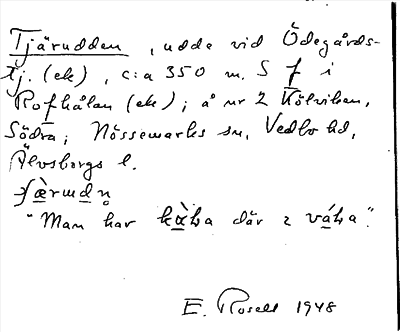 Tjärudden, udde vid Ödegårds-
tj. (ek), c:a 350 m. S f i
Rofhålan (ek); å nr 2 Kölviken,
Södra; Nössemarks sn, Vedbo hd,
Älvsborgs l.
"Man har där å
E. Rosell 1948